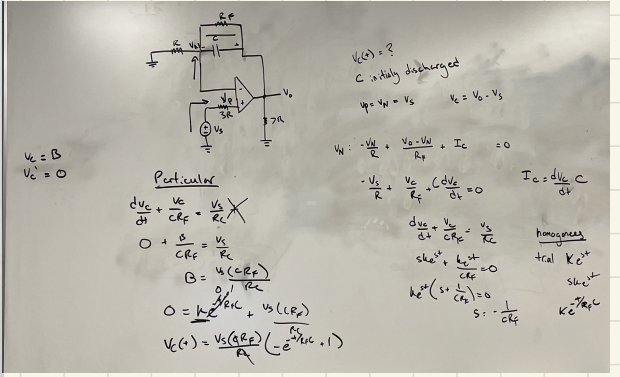 R_F
R
V_N
C
-
+
V_P
3R
V_S
V_o
7R
V_C(t) = ?
C initially discharged
V_P = V_N = V_S    V_C = V_o - V_S
V_N: -V_N/R + (V_o - V_N)/R_F + I_C = 0
-V_S/R + V_C/R_F + C dV_C/dt = 0    I_C = dV_C/dt C
dV_C/dt + V_C/CR_F = V_S/RC
ske^st + ke^st/CR_F = 0
ke^st (s + 1/CR_F) = 0
s = -1/CR_F
trial Ke^st
ske^st
Ke^-t/R_FC
V_C = B
V_C' = 0
Particular
dV_C/dt + V_C/CR_F = V_S/RC
0 + B/CR_F = V_S/RC
B = V_S(CR_F)/RC
0 = Ke^-t/R_FC + V_S(CR_F)/RC
V_C(t) = V_S(CR_F)/RC (-e^-t/R_FC + 1)